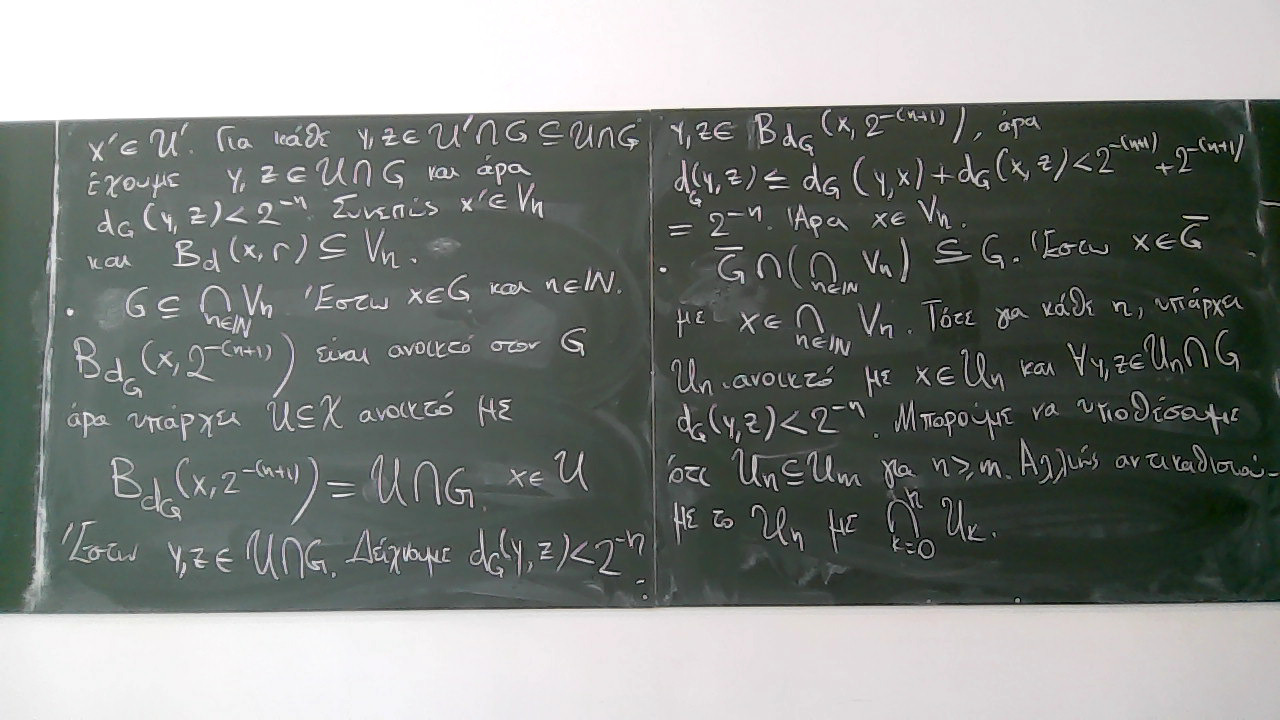 x' ∈ U'. Για κάθε y, z ∈ U' ∩ G ⊆ U ∩ G
έχουμε y, z ∈ U ∩ G και άρα
d_G(y, z) < 2^{-n}. Συνεπώς x' ∈ V_n
και B_d(x, r) ⊆ V_n.
• G ⊆ ⋂_{n∈ℕ} V_n Έστω x ∈ G και n ∈ ℕ.
B_{d_G}(x, 2^{-(n+1)}) είναι ανοικτό στον G
άρα υπάρχει U ⊆ X ανοικτό με
B_{d_G}(x, 2^{-(n+1)}) = U ∩ G. x ∈ U
Έστω y, z ∈ U ∩ G. Δείχνουμε d_G(y, z) < 2^{-n}:
y, z ∈ B_{d_G}(x, 2^{-(n+1)}), άρα
d_G(y, z) ≤ d_G(y, x) + d_G(x, z) < 2^{-(n+1)} + 2^{-(n+1)}
= 2^{-n}. Άρα x ∈ V_n.
• G̅ ∩ (⋂_{n∈ℕ} V_n) ⊆ G. Έστω x ∈ G̅
με x ∈ ⋂_{n∈ℕ} V_n. Τότε για κάθε n, υπάρχει
U_n ανοικτό με x ∈ U_n και ∀y, z ∈ U_n ∩ G
d_G(y, z) < 2^{-n}. Μπορούμε να υποθέσουμε
ότι U_n ⊆ U_m για n ≥ m. Αλλιώς αντικαθιστού-
με το U_n με ⋂_{k=0}^{n} U_k.